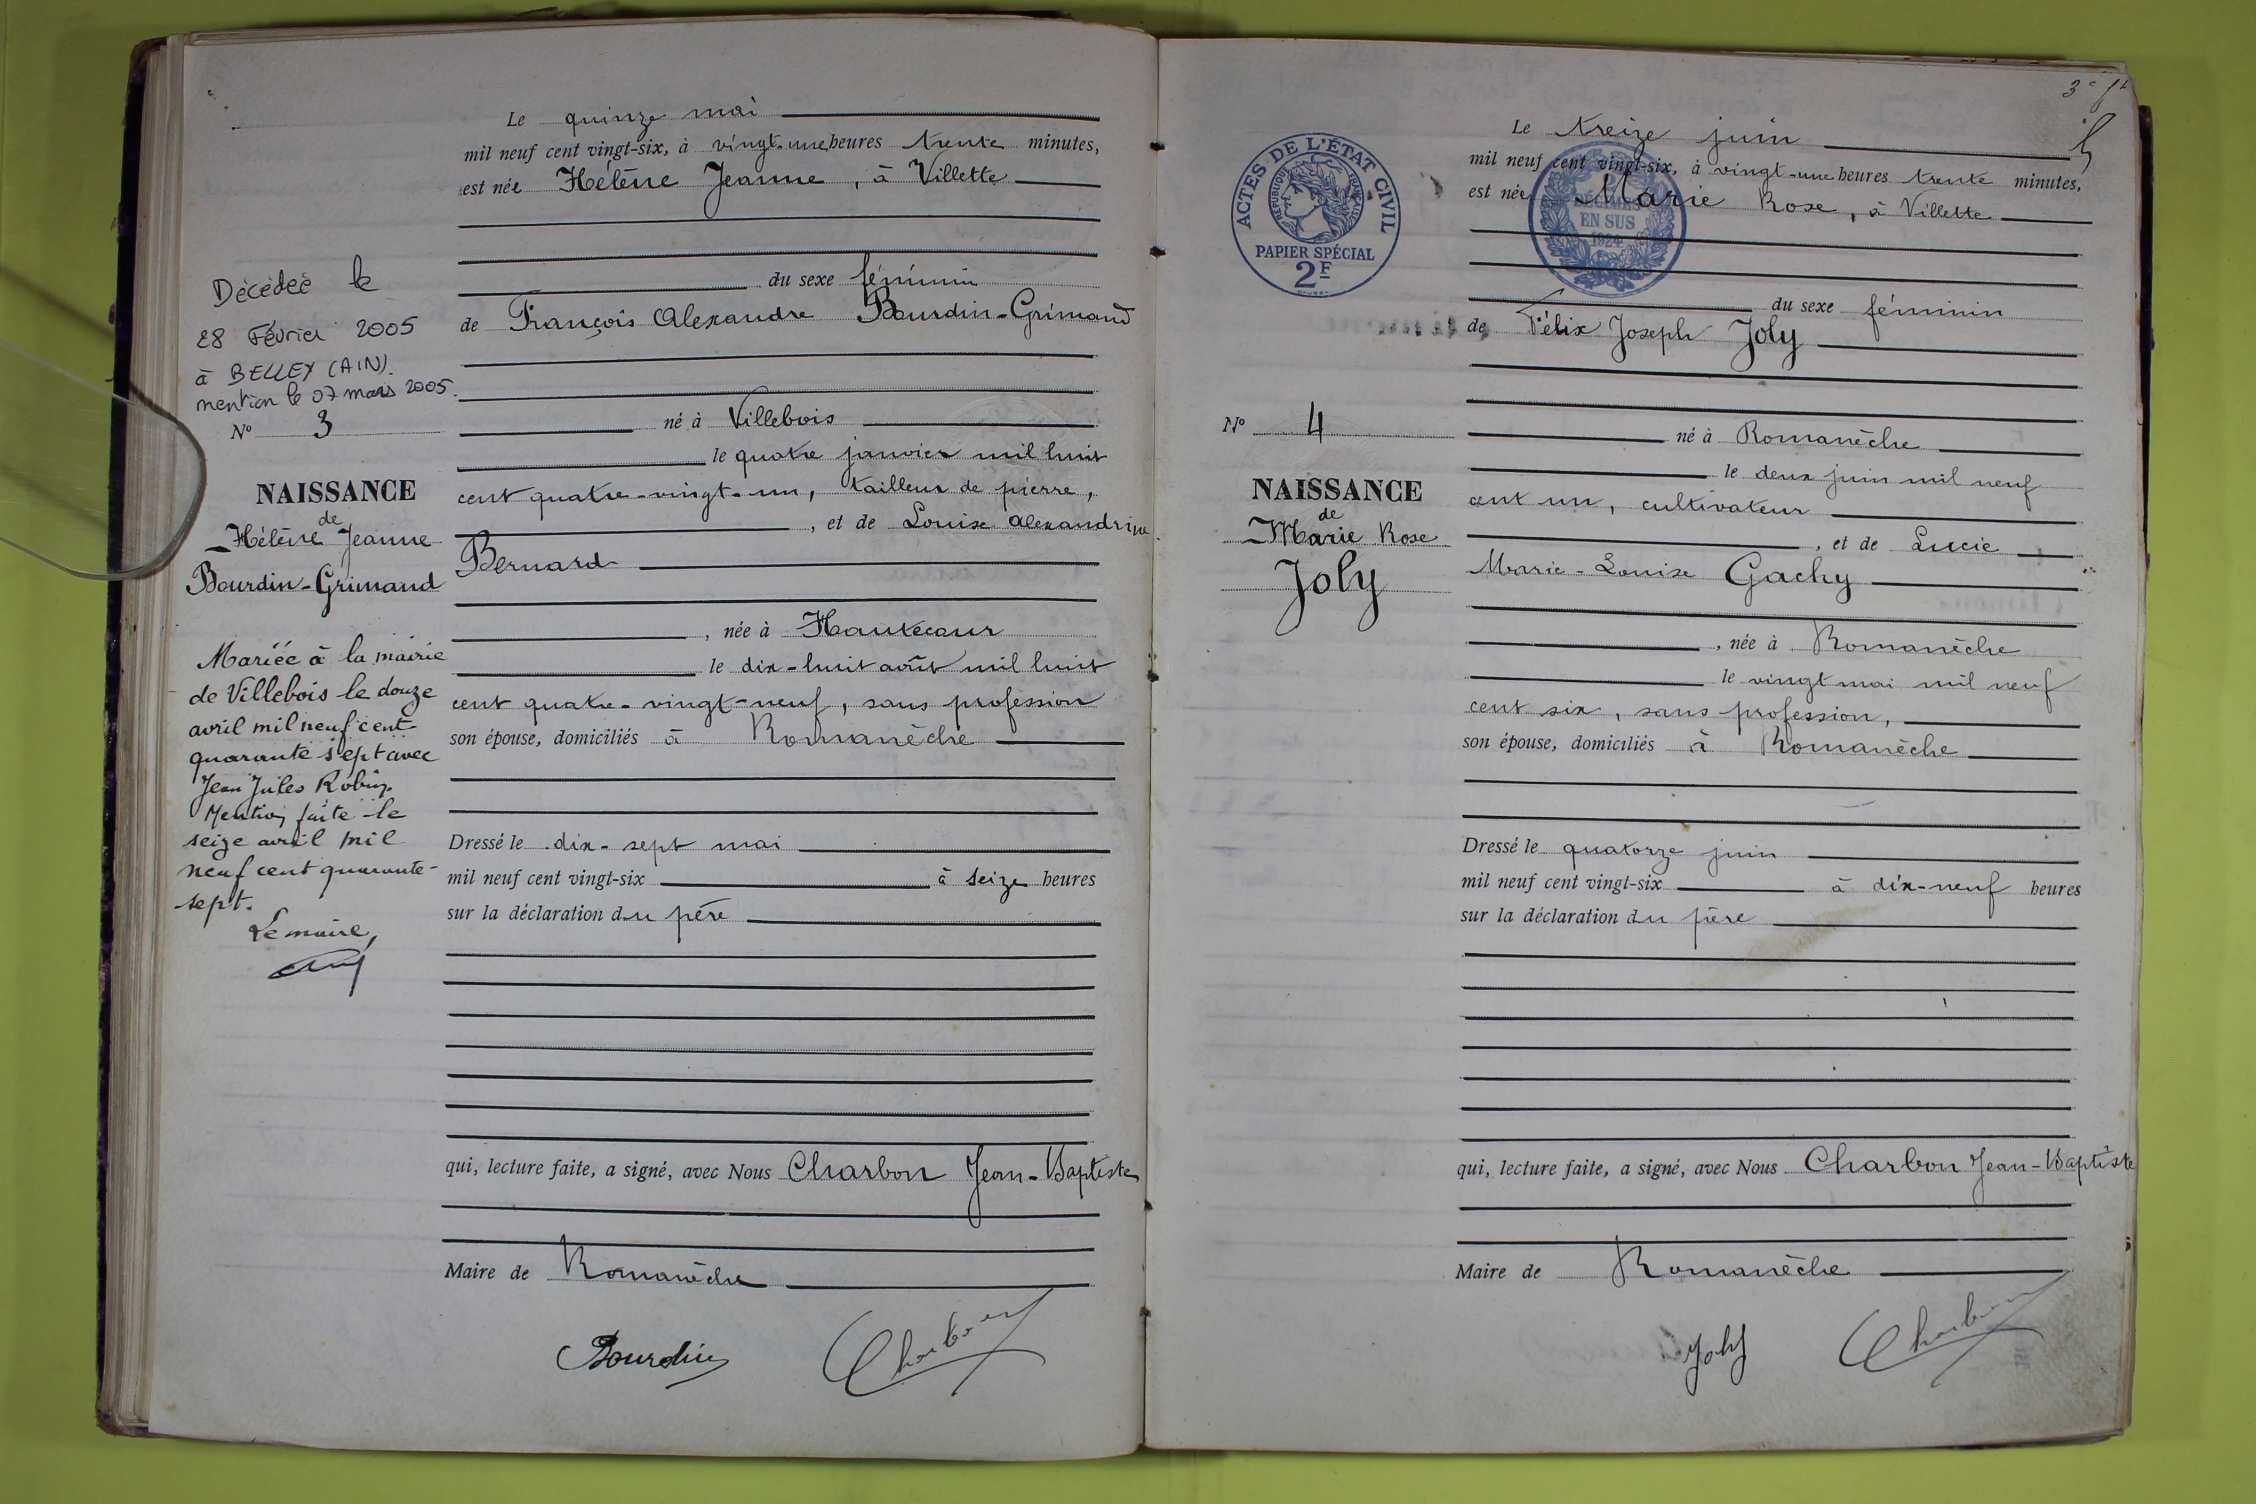 Le quinze mai
mil neuf cent vingt-six, à vingt-une heures trente minutes,
est née Hélène Jeanne, à Villette
du sexe féminin
de François Alexandre Bourdin-Grimaud
né à Villebois
le quatre janvier mil huit
cent quatre-vingt-un, tailleur de pierre,
, et de Louise Alexandrine
Bernard
, née à Hautecour
le dix-huit août mil huit
cent quatre-vingt-neuf, sans profession
son épouse, domiciliés à Romanèche
Dressé le dix-sept mai
mil neuf cent vingt-six à seize heures
sur la déclaration du père
qui, lecture faite, a signé, avec Nous Charbon Jean-Baptiste
Maire de Romanèche
Bourdin Charbon
Décédée le
28 Février 2005
à BELLEY (AIN).
mention le 07 mars 2005.
N° 3
NAISSANCE
de
Hélène Jeanne
Bourdin-Grimaud
Mariée à la mairie
de Villebois le douze
avril mil neuf cent
quarante sept avec
Jean Jules Robin.
Mention faite le
seize avril mil
neuf cent quarante-
sept.
Le maire,
3e ft
ACTES DE L'ÉTAT CIVIL
RÉPUBLIQUE FRANÇAISE
PAPIER SPÉCIAL
2F
DÉCIMES
EN SUS
1924
Le treize juin
mil neuf cent vingt-six, à vingt-une heures trente minutes,
est née Marie Rose, à Villette
du sexe féminin
de Félix Joseph Joly
né à Romanèche
le deux juin mil neuf
cent un, cultivateur
, et de Lucie
Marie-Louise Gachy
, née à Romanèche
le vingt mai mil neuf
cent six, sans profession,
son épouse, domiciliés à Romanèche
Dressé le quatorze juin
mil neuf cent vingt-six à dix-neuf heures
sur la déclaration du père
qui, lecture faite, a signé, avec Nous Charbon Jean-Baptiste
Maire de Romanèche
Joly Charbon
N° 4
NAISSANCE
de
Marie Rose
Joly